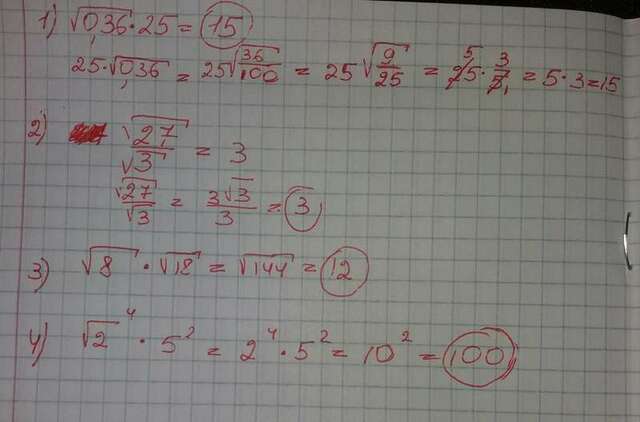 1) √0,36 · 25 = 15
25 · √0,36 = 25√36/100 = 25√9/25 = 25 · 3/5 = 5 · 3 = 15
2) √27/√3 = 3
√27/√3 = 3√3/3 = 3
3) √8 · √18 = √144 = 12
4) √2⁴ · 5² = 2⁴ · 5² = 10² = 100